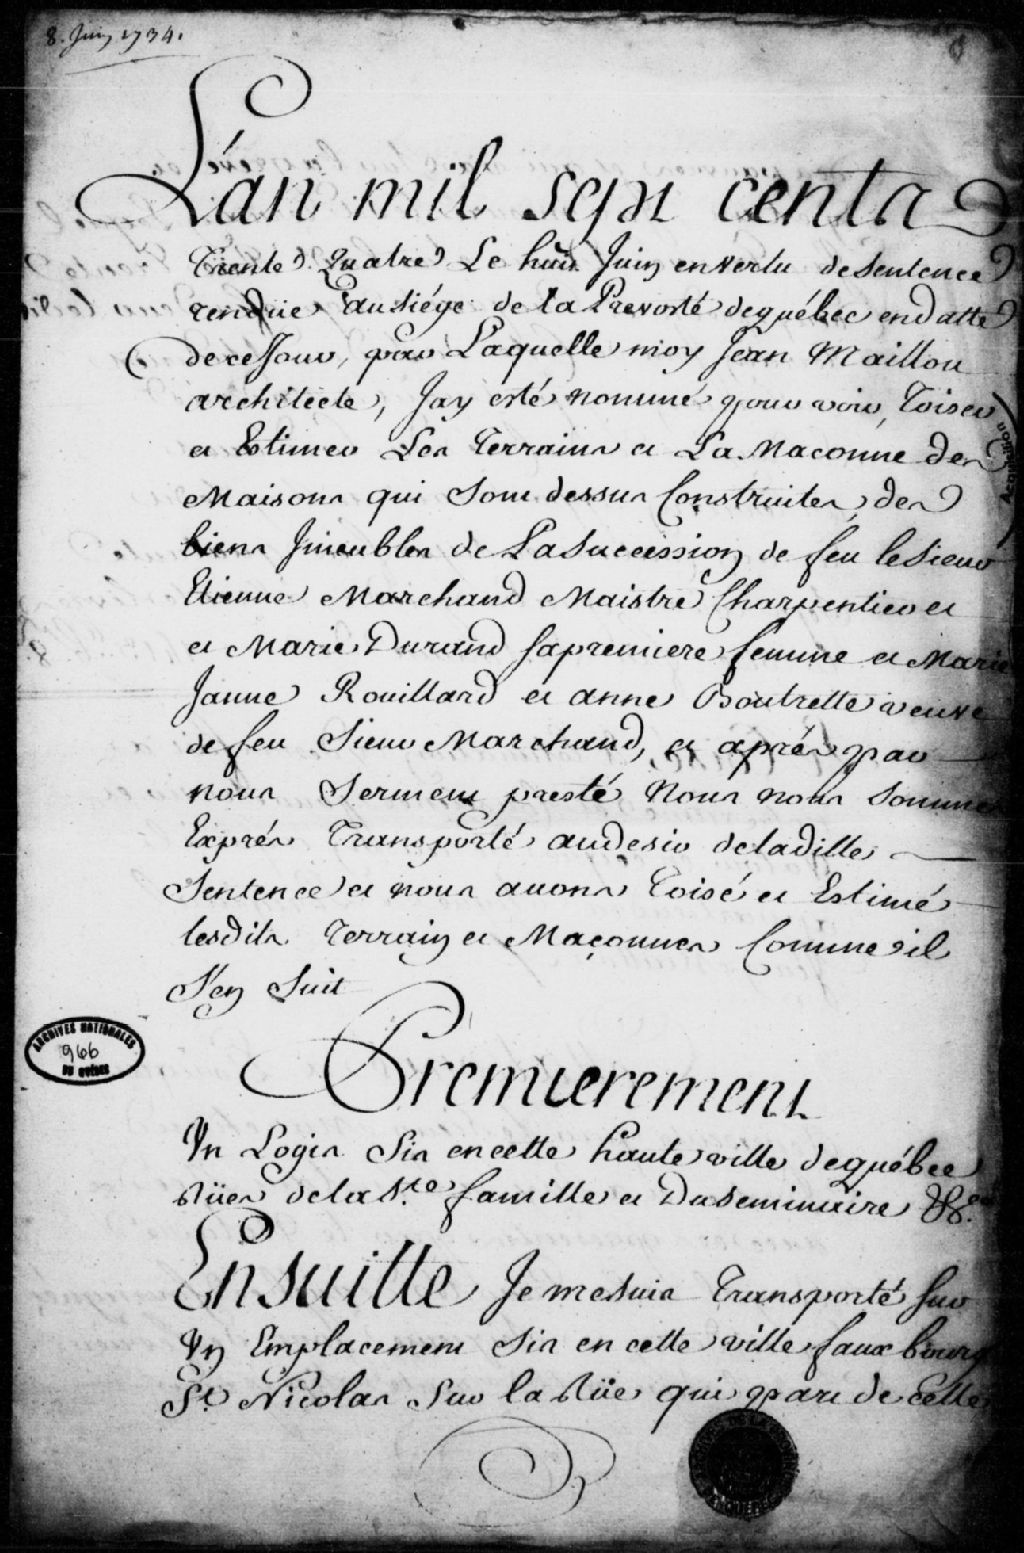 8. Juin 1734.
L'an mil sept cents
Trente Quatre Le huit Juin en vertu de sentence
rendüe au siége de la Prevosté de québec en datte
de ce Jour, par Laquelle moy Jean Maillou
architecte, Jay esté nommé pour voir, Toiser
et Estimer Les Terrains et La Maconne des
Maisons qui sont dessus Construites, des
biens Jmeubles de La Succession de feu le Sieur
Etienne Marchand Maistre Charpentier et
et Marie Durand sa premiere femme et Marie
Janne Rouillard et anne Boutrette veuve
de feu Sieur Marchand, et aprés par
nous Serment presté Nous nous Sommes
Exprés Transporté au desir de la ditte
Sentence et nous avons Toisé et Estimé
lesdits Terrain et Maçonnes Comme il
S'en Suit
ARCHIVES NATIONALES
966
DU QUÉBEC
Premierement
Vn Logis Sis en cette haute ville de québec
Rües de la Ste. famille et Du Seminaire &c.
Ensuitte Je me suis Transporté sur
Vn Emplacement Sis en cette ville faux bourg
St. Nicolas Sur la Rüe qui part de cette